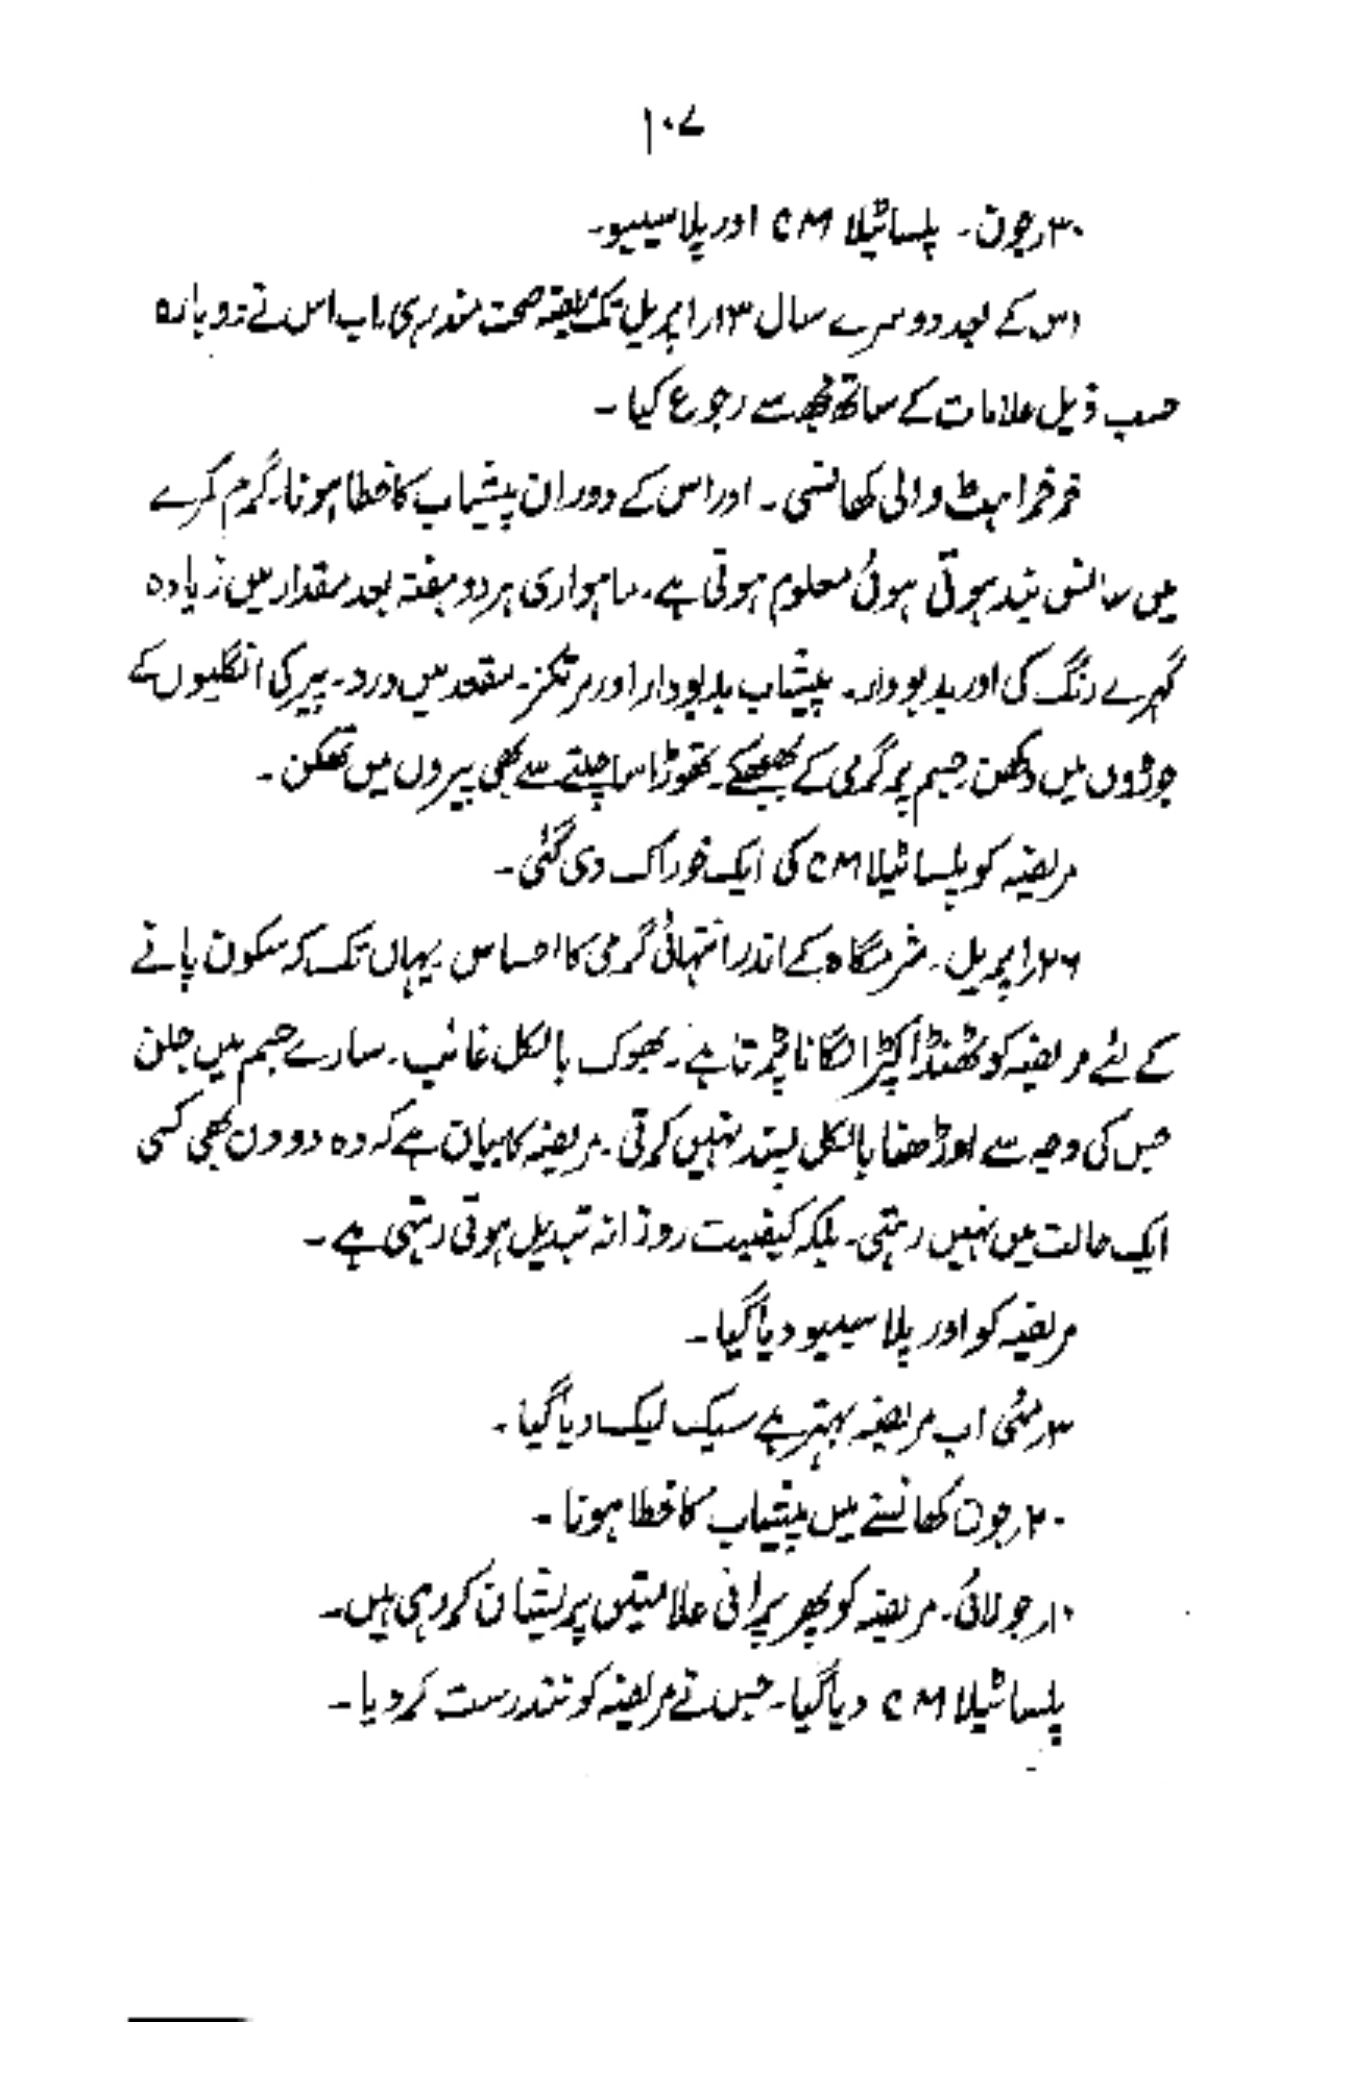 ۱۰۷
۳۰؍جون۔ پلساٹیلا CM اور پلاسیبو۔
اس کے بعد دوسرے سال ۱۳؍اپریل تک مریضہ صحت مند رہی اب اس نے دوبارہ
حسب ذیل علامات کے ساتھ مجھ سے رجوع کیا ۔
خرخراہٹ والی کھانسی ۔ اور اس کے دوران پیشاب کا خطا ہونا۔ گرم کمرے
میں سانس بند ہوتی ہوئی معلوم ہوتی ہے۔ ماہواری ہر دو ہفتہ بعد مقدار میں زیادہ
گہرے رنگ کی اور بدبودار۔ پیشاب بدبودار اور مرتکز۔ مقعد میں درد۔ پیر کی انگلیوں کے
جوڑوں میں دکھن جسم پر گرمی کے بھبھکے۔ تھوڑا سا چلنے سے بھی پیروں میں تھکن ۔
مریضہ کو پلساٹیلا CM کی ایک خوراک دی گئی ۔
۲۶؍اپریل۔ شرمگاہ کے اندر انتہائی گرمی کا احساس یہاں تک کہ سکون پانے
کے لئے مریضہ کو ٹھنڈا کپڑا لگانا پڑتا ہے۔ بھوک بالکل غائب۔ سارے جسم میں جلن
جس کی وجہ سے اوڑھنا بالکل پسند نہیں کرتی۔ مریضہ کا بیان ہے کہ وہ دو دن بھی کسی
ایک حالت میں نہیں رہتی۔ بلکہ کیفیت روزانہ تبدیل ہوتی رہتی ہے ۔
مریضہ کو اور پلاسیبو دیا گیا ۔
۳؍مئی اب مریضہ بہتر ہے سیک لیک دیا گیا ۔
۲۰؍جون کھانسنے میں پیشاب کا خطا ہونا ۔
۱۰؍جولائی۔ مریضہ کو پھر پرانی علامیتں پریشان کر رہی ہیں۔
پلساٹیلا CM دیا گیا۔ جس نے مریضہ کو تندرست کر دیا ۔